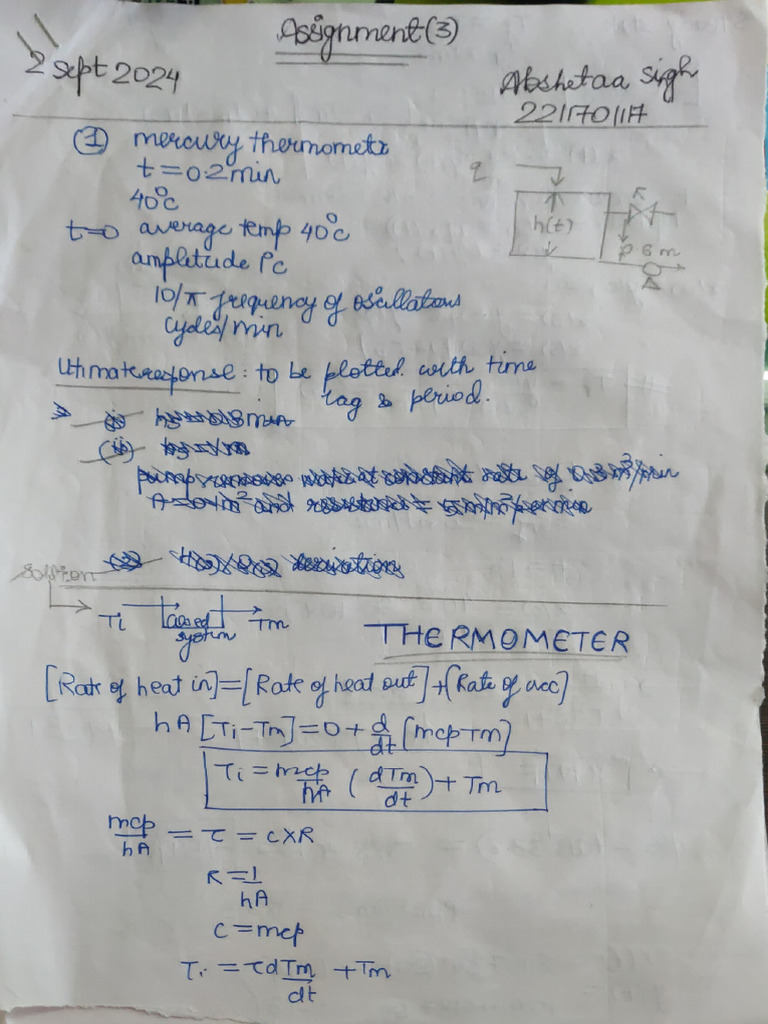 Assignment (3)
2 Sept 2024
Abshetaa Singh
221170117
① mercury thermometr
t = 0.2 min
40°C
t=0 average temp 40°C
amplitude 1°C
10/π frequency of oscillations
cycles/min
q
h(t)
Ultimate response : to be plotted with time
lag & period.
(ii)
pump removes water at constant rate of 0.3 m³/min
solution
Ti
closed
system
Tm
THERMOMETER
[Rate of heat in] = [Rate of heat out] + [Rate of acc]
hA [Ti - Tm] = 0 + d/dt (mcp Tm)
Ti = mcp/hA (dTm/dt) + Tm
mcp/hA = τ = C X R
R = 1/hA
C = mcp
Ti = τ dTm/dt + Tm